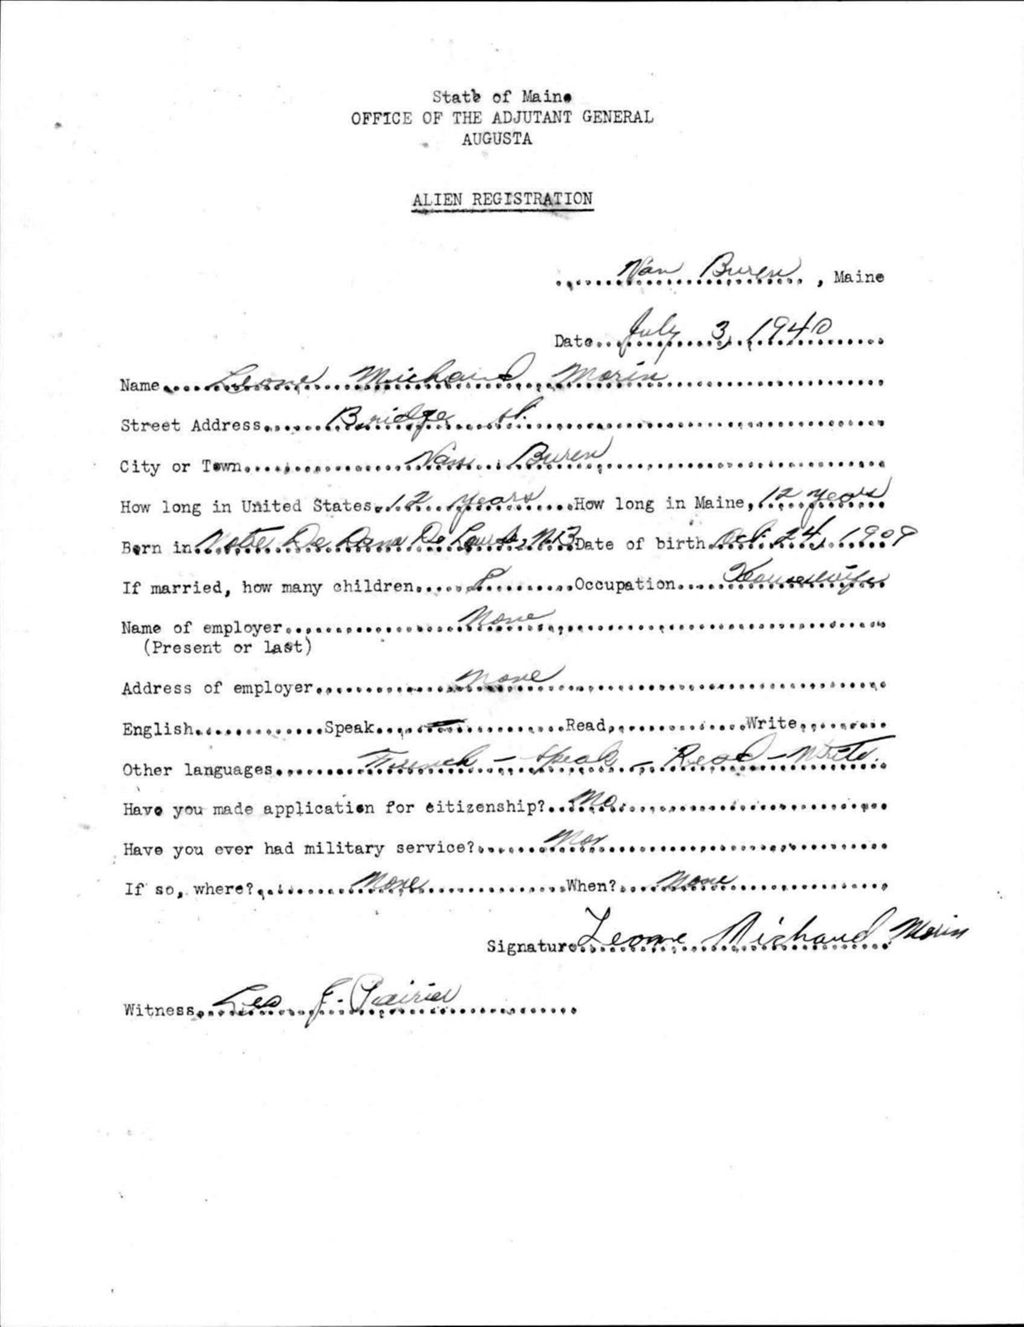 State of Maine
OFFICE OF THE ADJUTANT GENERAL
AUGUSTA
ALIEN REGISTRATION
Van Buren, Maine
Date July 3, 1940
Name Leone Michaud Morin
Street Address Bridge St.
City or Town Van Buren
How long in United States 12 years How long in Maine, 12 years
Born in Notre De Dame De Lourdes, N.B Date of birth Oct. 24, 1909
If married, how many children Occupation Housewife
Name of employer None
(Present or last)
Address of employer None
English Speak - Read Write
Other languages French - Speak - Read - Write.
Have you made application for citizenship? No.
Have you ever had military service? No
If so, where? None When? None
Signature Leone Michaud Morin
Witness Leo J.